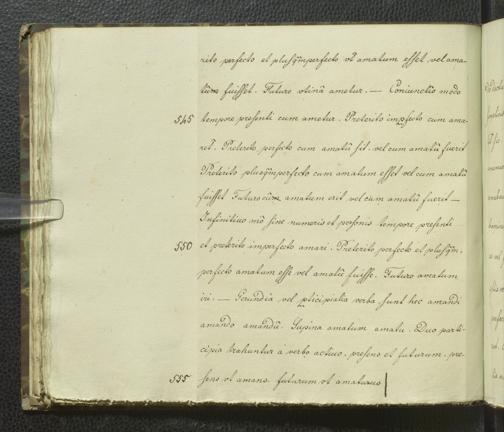 rito perfecto et plusq̃mperfecto vt amatum esset vel ama-
tum fuisset. Futuro vtinã ametur. — Coniunctiuo modo
545 tempore presenti cum ametur. Preterito impfecto cum ama-
ret. Preterito perfecto cum amatũ sit. vel cum amatũ fuerit
Preterito plusq̃mperfecto cum amatum esset vel cum amatũ
fuisset Futuro cũm amatum erit vel cum amatũ fuerit —
Infinitiuo mõ sine numeris et personis tempore presenti
550 et preterito imperfecto amari. Preterito perfecto et plusq̃m.
perfecto amatum esse vel amatũ fuisse. Futuro amatum
iri. — Gerundia vel pticipialia verba sunt hec amandi
amando amandũ. Supina amatum amatu. Duo parti-
cipia trahuntur a verbo actiuo. presens et futurum. pre-
555 sens vt amans futurum vt amaturus